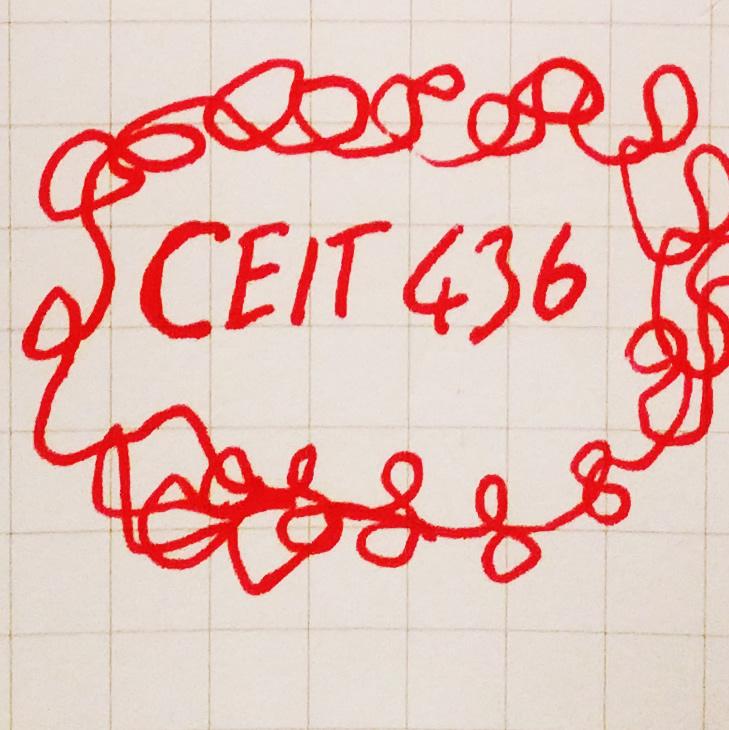 CEIT 436